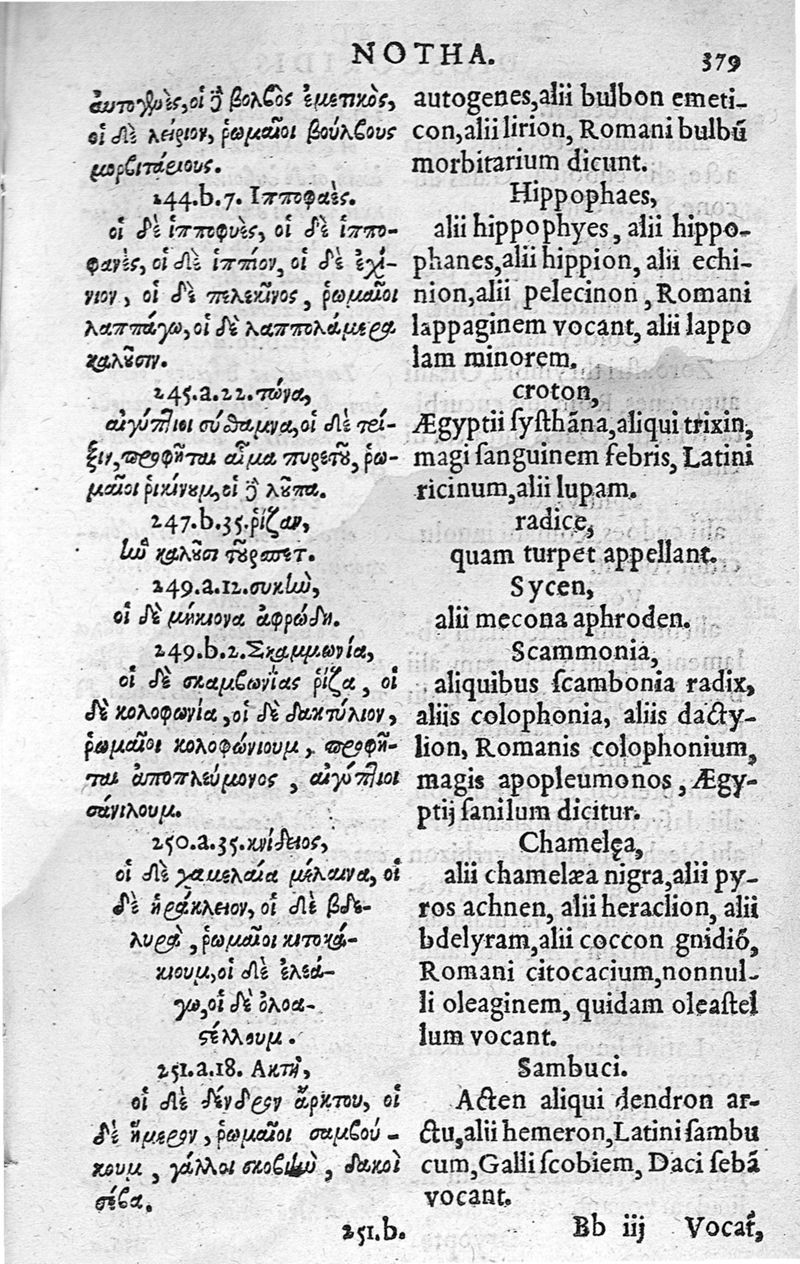 NOTHA. 379
αυτογενὲς, οἱ δὲ βολβὸς ἐμετικὸς,
οἱ δὲ λείριον, ῥωμαῖοι βούλβους
μορβιταρίους.
244.b.7. Ιπποφαὲς.
οἱ δὲ ἱπποφυὲς, οἱ δὲ ἱππο-
φανὲς, οἱ δὲ ἱππίον, οἱ δὲ ἐχί-
νιον, οἱ δὲ πελεκῖνος, ῥωμαῖοι
λαππάγω, οἱ δὲ λαππολάμερα
καλοῦσιν.
245.a.22.
αἰγύπτιοι σύσθαμνα, οἱ δὲ τρί-
ξιν, προφῆται αἷμα πυρετοῦ, ῥω-
μαῖοι ῥικίνουμ, οἱ δὲ λούπα.
247.b.35. ῥίζαν,
ἣν καλοῦσι τούρπετ.
249.a.12. συκῆν,
οἱ δὲ μήκιονα ἀφρώδη.
249.b.2. Σκαμμωνία,
οἱ δὲ σκαμβωνίας ῥίζα, οἱ
δὲ κολοφωνία, οἱ δὲ δακτύλιον,
ῥωμαῖοι κολοφώνιουμ, προφῆ-
ται ἀποπλεύμονος, αἰγύπτιοι
σάνιλουμ.
250.a.35. κνίδειος,
οἱ δὲ χαμελαία μέλαινα, οἱ
δὲ ἡράκλειον, οἱ δὲ βδε-
λυρὰ, ῥωμαῖοι κιτοκά-
κιουμ, οἱ δὲ ἐλεά-
γω, οἱ δὲ ὀλοα-
στέλλουμ.
251.a.18. Ακτῆ,
οἱ δὲ δένδρον ἄρκτου, οἱ
δὲ ἥμερον, ῥωμαῖοι σαμβού-
κουμ, γάλλοι σκοβιὴν, δακοὶ
σέβα.
251.b.
autogenes,alii bulbon emeti-
con,alii lirion, Romani bulbū
morbitarium dicunt.
Hippophaes,
alii hippophyes, alii hippo-
phanes,alii hippion, alii echi-
nion,alii pelecinon, Romani
lappaginem vocant, alii lappo
lam minorem.
croton,
Ægyptii ſyſthāna,aliqui trixin,
magi ſanguinem febris, Latini
ricinum,alii lupam.
radice,
quam turpet appellant.
Sycen,
alii mecona aphroden.
Scammonia,
aliquibus ſcambonia radix,
aliis colophonia, aliis dacty-
lion, Romanis colophonium,
magis apopleumonos, Ægy-
ptij ſanilum dicitur.
Chamelęa,
alii chamelæa nigra,alii py-
ros achnen, alii heraclion, alii
bdelyram,alii coccon gnidiō,
Romani citocacium,nonnul-
li oleaginem, quidam oleaſtel
lum vocant.
Sambuci.
Acten aliqui dendron ar-
ctu,alii hemeron,Latini ſambu
cum,Galli ſcobiem, Daci ſebā
vocant.
Bb iij Vocat,